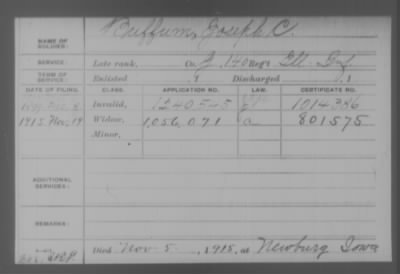 NAME OF SOLDIER: Buffum, Joseph C.
SERVICE: Late rank, Co. I, 140 Reg't Ill. Inf.
TERM OF SERVICE: Enlisted , 1 Discharged , 1
DATE OF FILING. CLASS. APPLICATION NO. LAW. CERTIFICATE NO.
Invalid, 1240545 1014386
1915 Nov. 19 Widow, 1,056,071 a 801575
Minor,
ADDITIONAL SERVICES:
REMARKS:
Died Nov 5, 1915, at Newburg Iowa